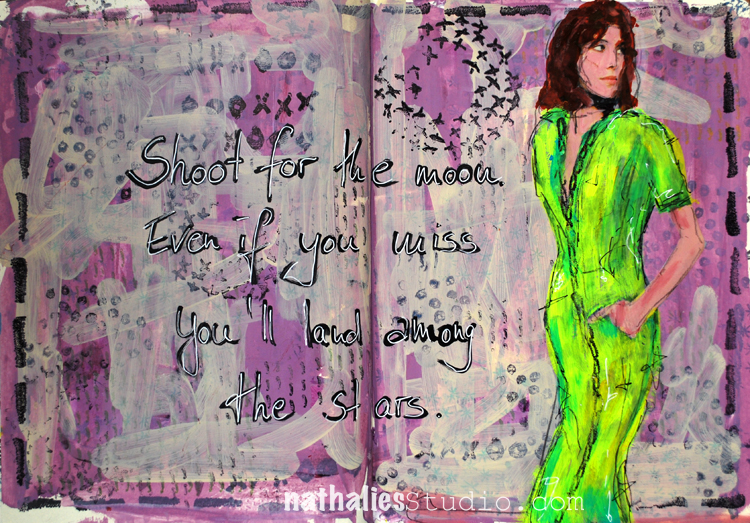 Shoot for the moon.
Even if you miss
you'll land among
the stars.
nathaliesstudio.com